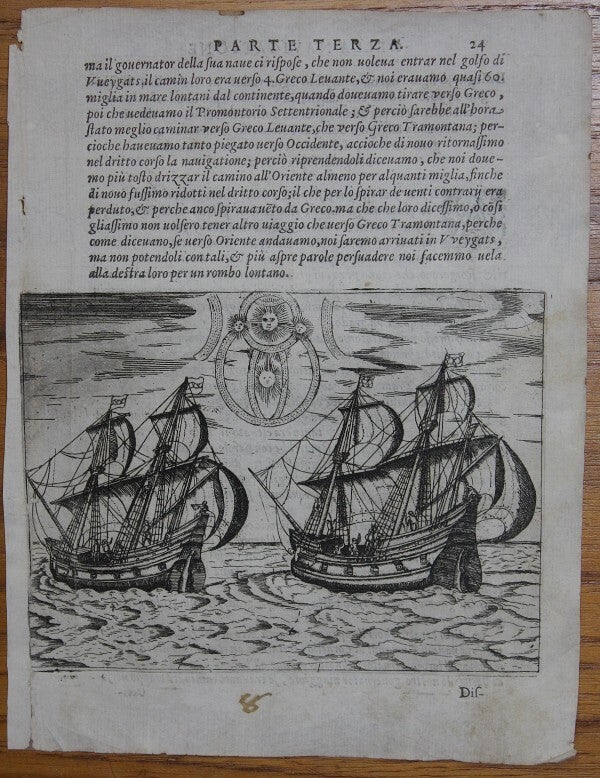 PARTE TERZA. 24
ma il gouernator della sua naue ci rispose, che non uoleua entrar nel golfo di
Vueygats, il camin loro era uerso 4. Greco Leuante, & noi erauamo quasi 60.
miglia in mare lontani dal continente, quando doueuamo tirare verso Greco,
poi che uedeuamo il Promontorio Settentrionale; & perciò sarebbe all'hora
stato meglio caminar verso Greco Leuante, che verso Greco Tramontana; per-
cioche haueuamo tanto piegato verso Occidente, accioche di nouo ritornassimo
nel dritto corso la nauigatione; perciò riprendendoli diceuamo, che noi doue-
mo più tosto drizzar il camino all'Oriente almeno per alquanti miglia, finche
di nouo fussimo ridotti nel dritto corso; il che per lò spirar de uenti contrarij era
perduto, & perche anco spiraua uēto da Greco. ma che che loro dicessimo, ò cōsi
gliassimo non uolsero tener altro uiaggio che uerso Greco Tramontana, perche
come diceuano, se uerso Oriente andauamo, noi saremo arriuati in Vveygats,
ma non potendoli con tali, & più aspre parole persuadere noi facemmo uela
alla destra loro per un rombo lontano.
Dis-